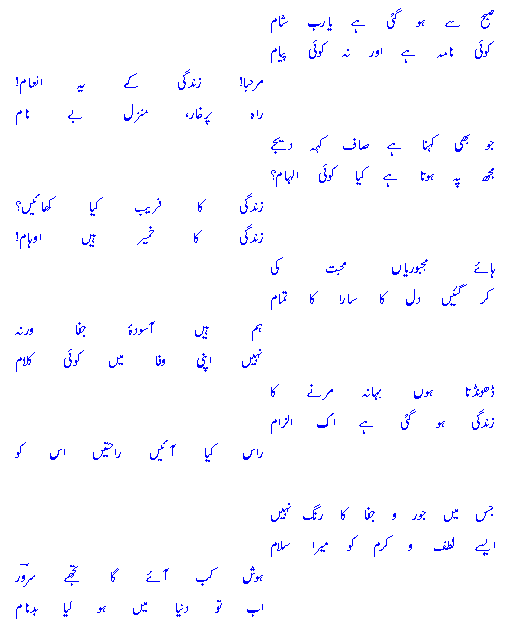 صبح سے ہو گئی ہے یارب شام
کوئی نامہ ہے اور نہ کوئی پیام
مرحبا! زندگی کے یہ انعام!
راہ پرخار، منزل بے نام
جو بھی کہنا ہے صاف کہہ دیجے
مجھ پہ ہوتا ہے کیا کوئی الہام؟
زندگی کا فریب کیا کھائیں؟
زندگی کا خمیر ہیں اوہام!
ہائے مجبوریاں محبت کی
کر گئیں دل کا سارا کا تمام
ہم ہیں آسودۂ جفا ورنہ
نہیں اپنی وفا میں کوئی کلام
ڈھونڈتا ہوں بہانہ مرنے کا
زندگی ہو گئی ہے اک الزام
راس کیا آئیں راحتیں اس کو
جس میں جور و جفا کا رنگ نہیں
ایسے لطف و کرم کو میرا سلام
ہوش کب آئے گا تجھے سرور
اب تو دنیا میں ہو لیا بدنام